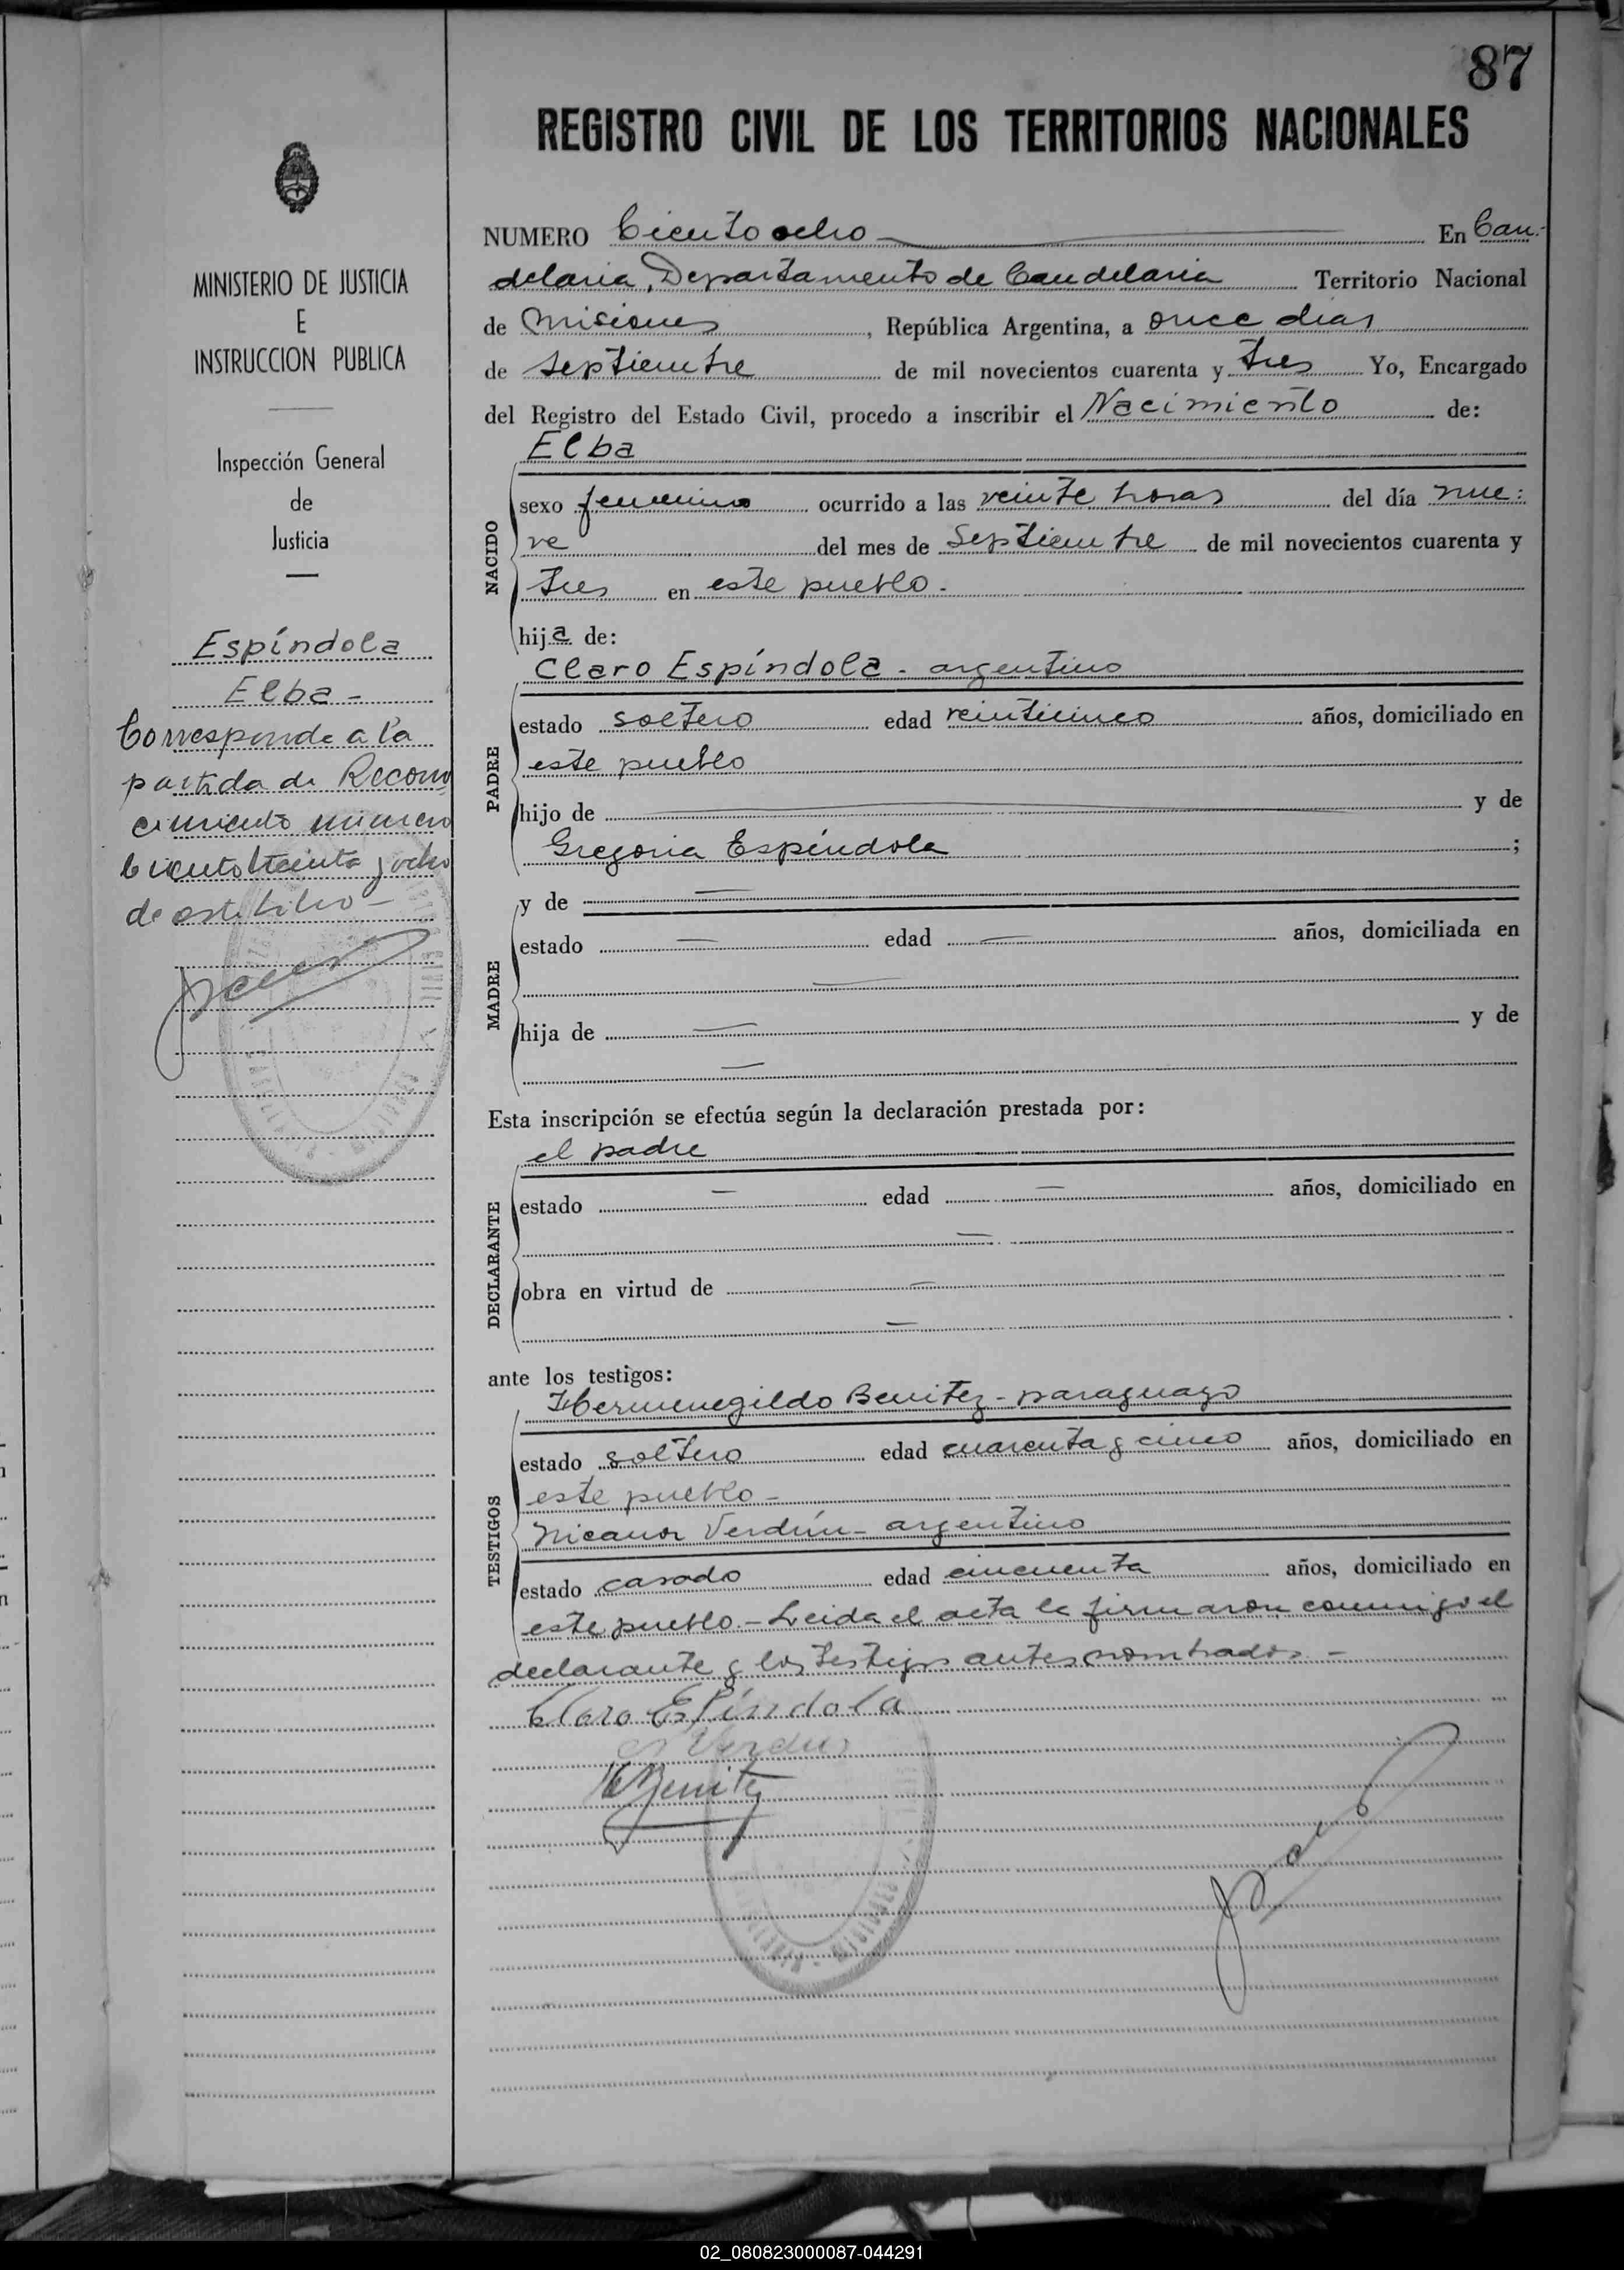 87
REGISTRO CIVIL DE LOS TERRITORIOS NACIONALES
MINISTERIO DE JUSTICIA
E
INSTRUCCION PUBLICA
Inspección General
de
Justicia
Espíndola
Elba -
Corresponde a la
partida de Recono
cimiento número
Ciento treinta y ocho
de este libro -
NUMERO Ciento ocho En Can-
delaria, Departamento de Candelaria Territorio Nacional
de Misiones, República Argentina, a once dias
de septiembre de mil novecientos cuarenta y tres Yo, Encargado
del Registro del Estado Civil, procedo a inscribir el Nacimiento de:
Elba
NACIDO
sexo femenino ocurrido a las veinte horas del día nue:
ve del mes de Septiembre de mil novecientos cuarenta y
tres en este pueblo.
hija de:
Claro Espíndola - argentino
PADRE
estado soltero edad veinticinco años, domiciliado en
este pueblo
hijo de y de
Gregoria Espíndola ;
y de
MADRE
estado edad años, domiciliada en
hija de y de
Esta inscripción se efectúa según la declaración prestada por:
el padre
DECLARANTE
estado edad años, domiciliado en
obra en virtud de
ante los testigos:
Hermenegildo Benitez - paraguayo
TESTIGOS
estado soltero edad cuarenta y cinco años, domiciliado en
este pueblo -
Nicanor Verdún - argentino
estado casado edad cincuenta años, domiciliado en
este pueblo. - Leida el acta la firmaron conmigo el
declarante y los testigos antes nombrados. -
Claro Espíndola
Verdun
HBenitez
02_080823000087-044291